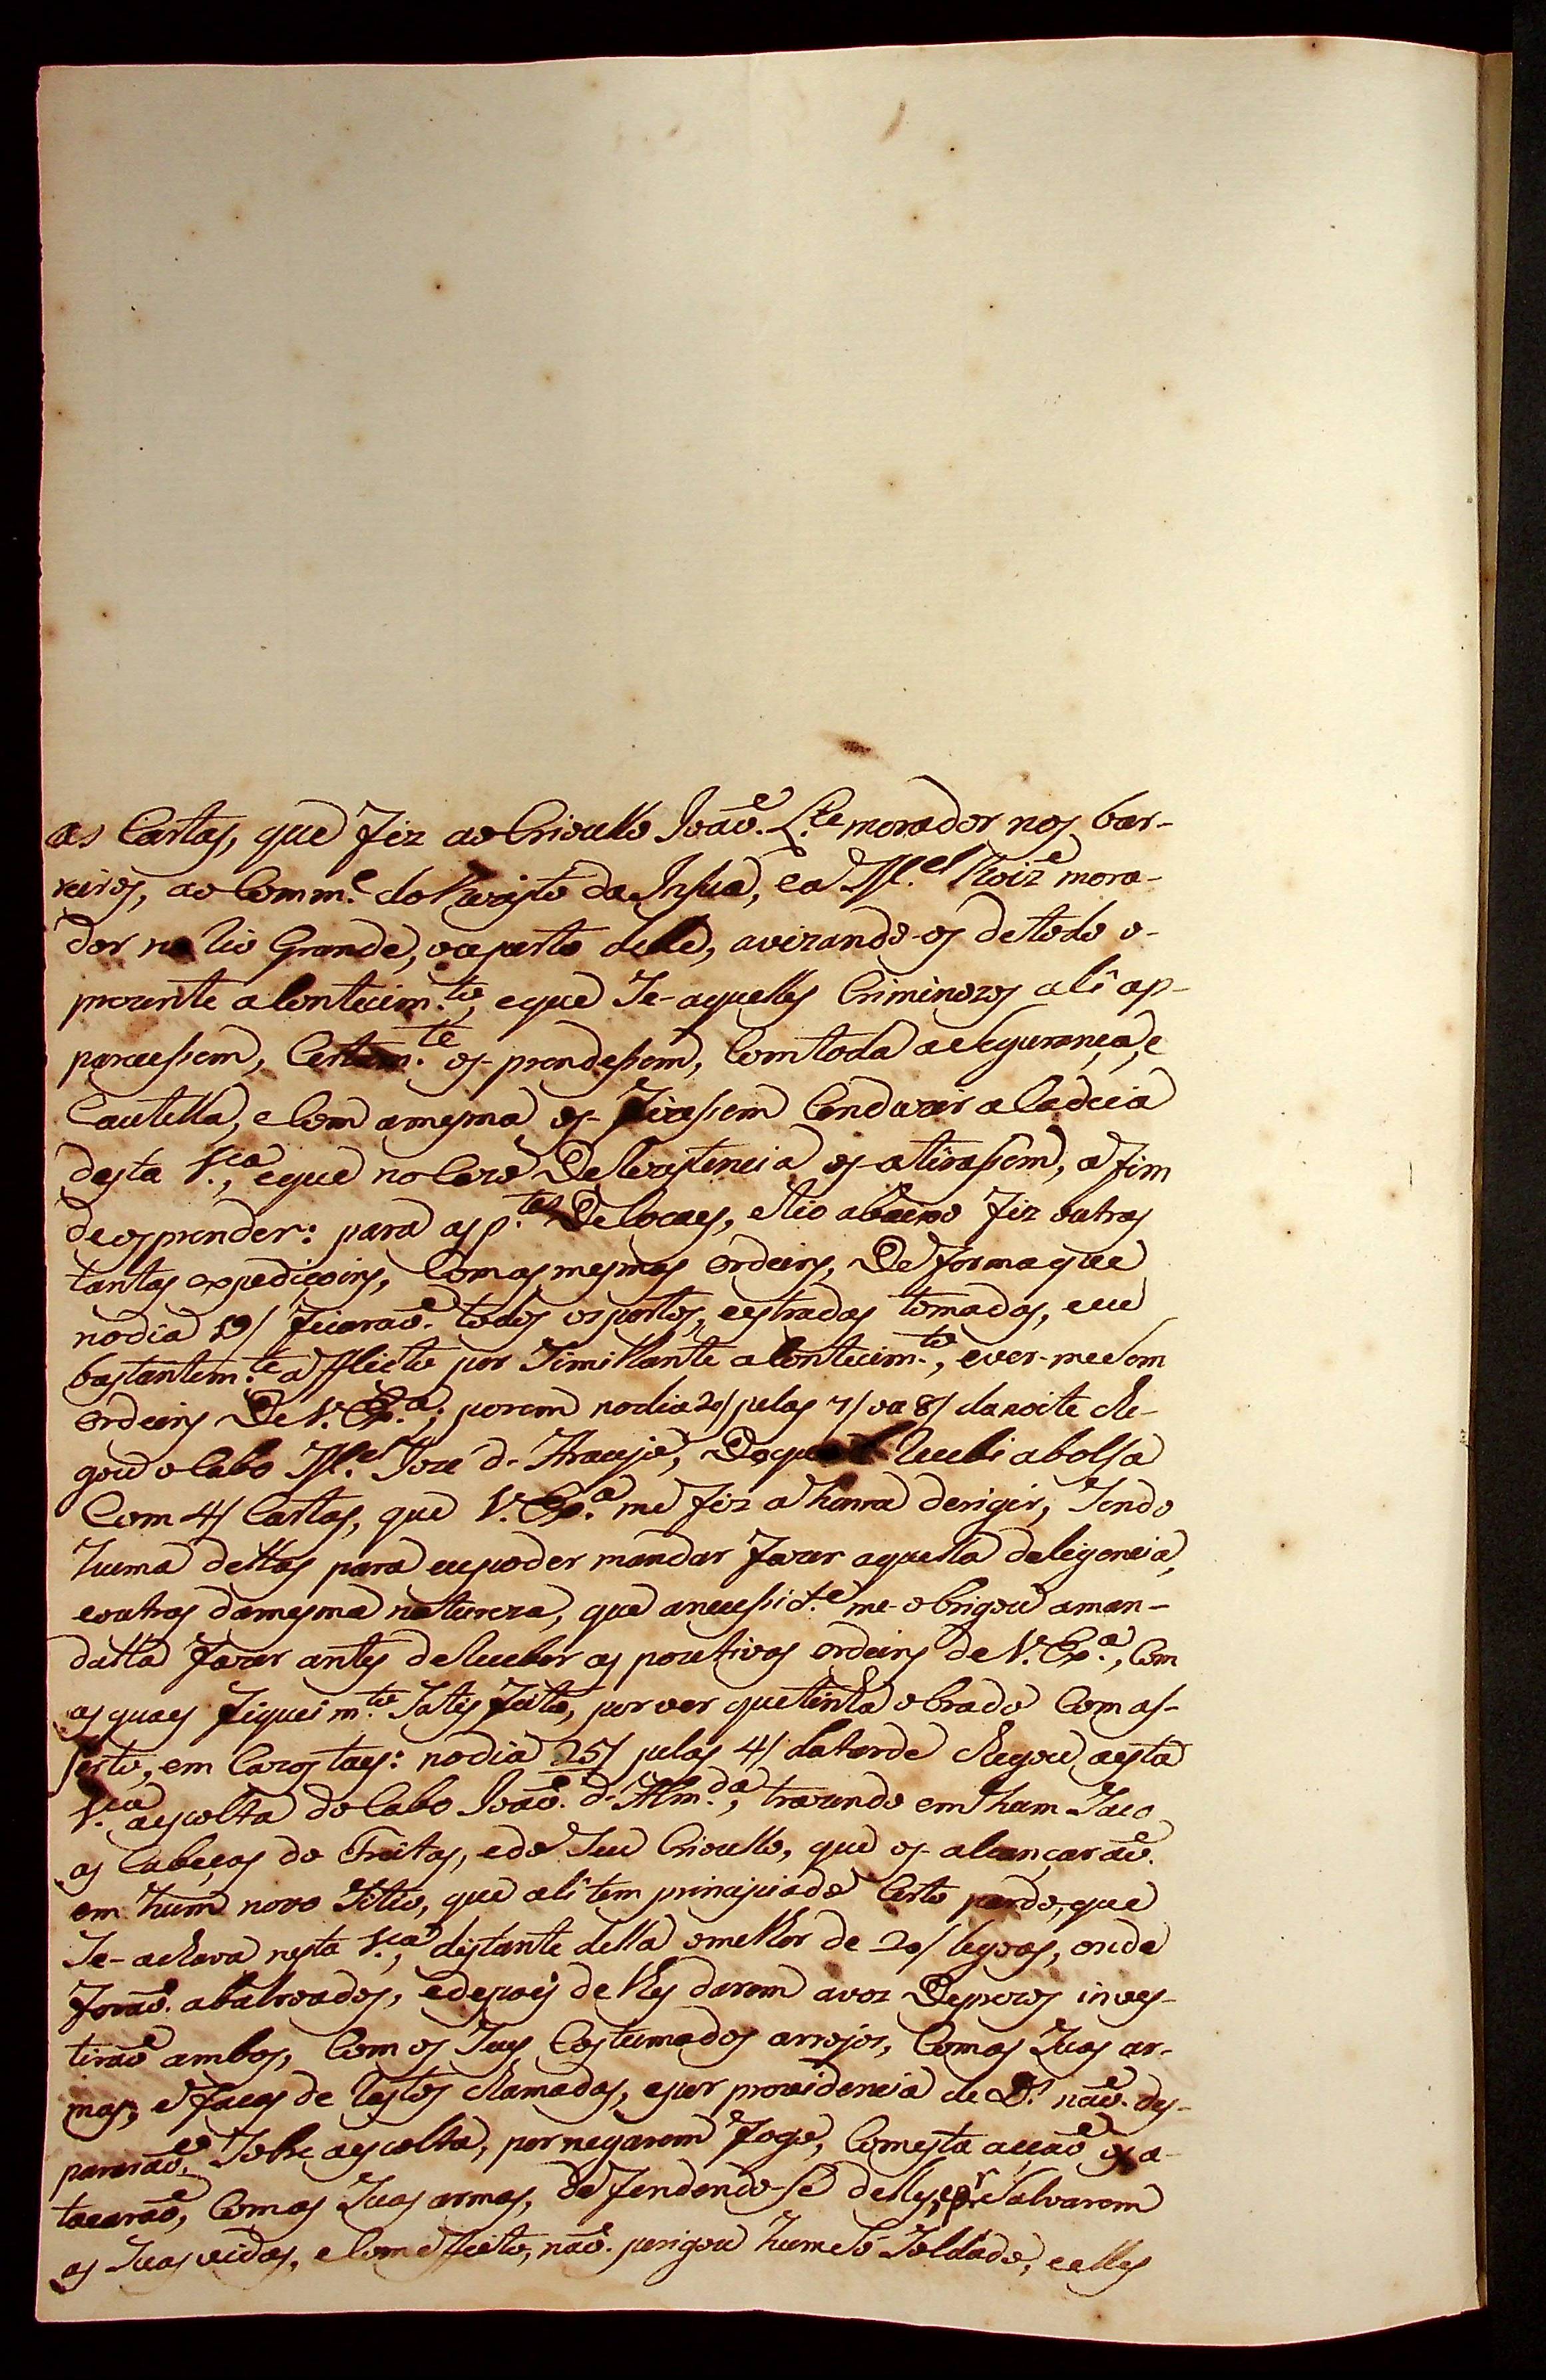 as Cartas, que fiz ao Crioullo João L.te morador nos bar-
reiros, ao Comm.e do Rezisto da Insua, e a M.el Roiz mora-
dor no Rio Grande, ou perto delle, avizando-os de todo o-
prezente acontecim.to, e que se- aquelles Criminozos ali ap-
parecessem, Certam.te os- prendessem, Com toda a Seguranca, e
Cautella, e Com a mesma os- fizessem Conduzir a Cadeia
desta V.ca, e que no Cazo De Rezistencia os- atirassem, a fim
de os prender: para as p.tes De Cocaes, e Rio abaixo fiz outras
tantas expediçoins, Com as mesmas Ordeins, De forma que
no dia 19/ ficarão todos os portos, e estradas tomadas, e eu
bastantem.te afflicto por Simillante acontecim.to, e ver-me Sem
Ordeins De V. Ex.a; porem no dia 20/ pelas 7/ ou 8/ da noite che-
gou o Cabo M.el Joze d- Araujo, Do qual Recebi a bolsa
Com 4/ Cartas, que V. Ex.a me fez a honra derigir, Sendo
huma dellas para eu poder mandar fazer aquella deligencia,
e outras da mesma natureza, que a necessid.e me- obrigou a man-
dalla fazer antes de Receber as pozetivas Ordeins de V. Ex.a, Com
as quaes fiquei m.to Satisfeito, por ver que tinha obrado Com as-
serto, em Cazos taes: no dia 25/ pelas 4/ da tarde chegou a esta
V.ca a escolta do Cabo João d- Alm.da, trazendo em hum Saco
as Cabeças do Freitas, e do Seu Crioullo, que os- alcançarão
em hum novo Sitio, que ali tem principiado Certo pardo, que
Se- achava nesta V.ca, distante della o melhor de 20/ legoas, onde
forão abalroados, e depois de lhes darem a voz De prezos inves-
tirão ambos, Com os Seus Costumados arrojos, Com as Suas ar-
mas, e facas de Rastos chamadas, e por providencia de D.s não des-
pararão Sobre a escolta, por negarem fogo, Com esta acção os a-
tacarão, Com as Suas armas, defendendo-se delles, e p.r Salvarem
as Suas vidas, e Com effeito, não perigou hum só Soldado, e elles